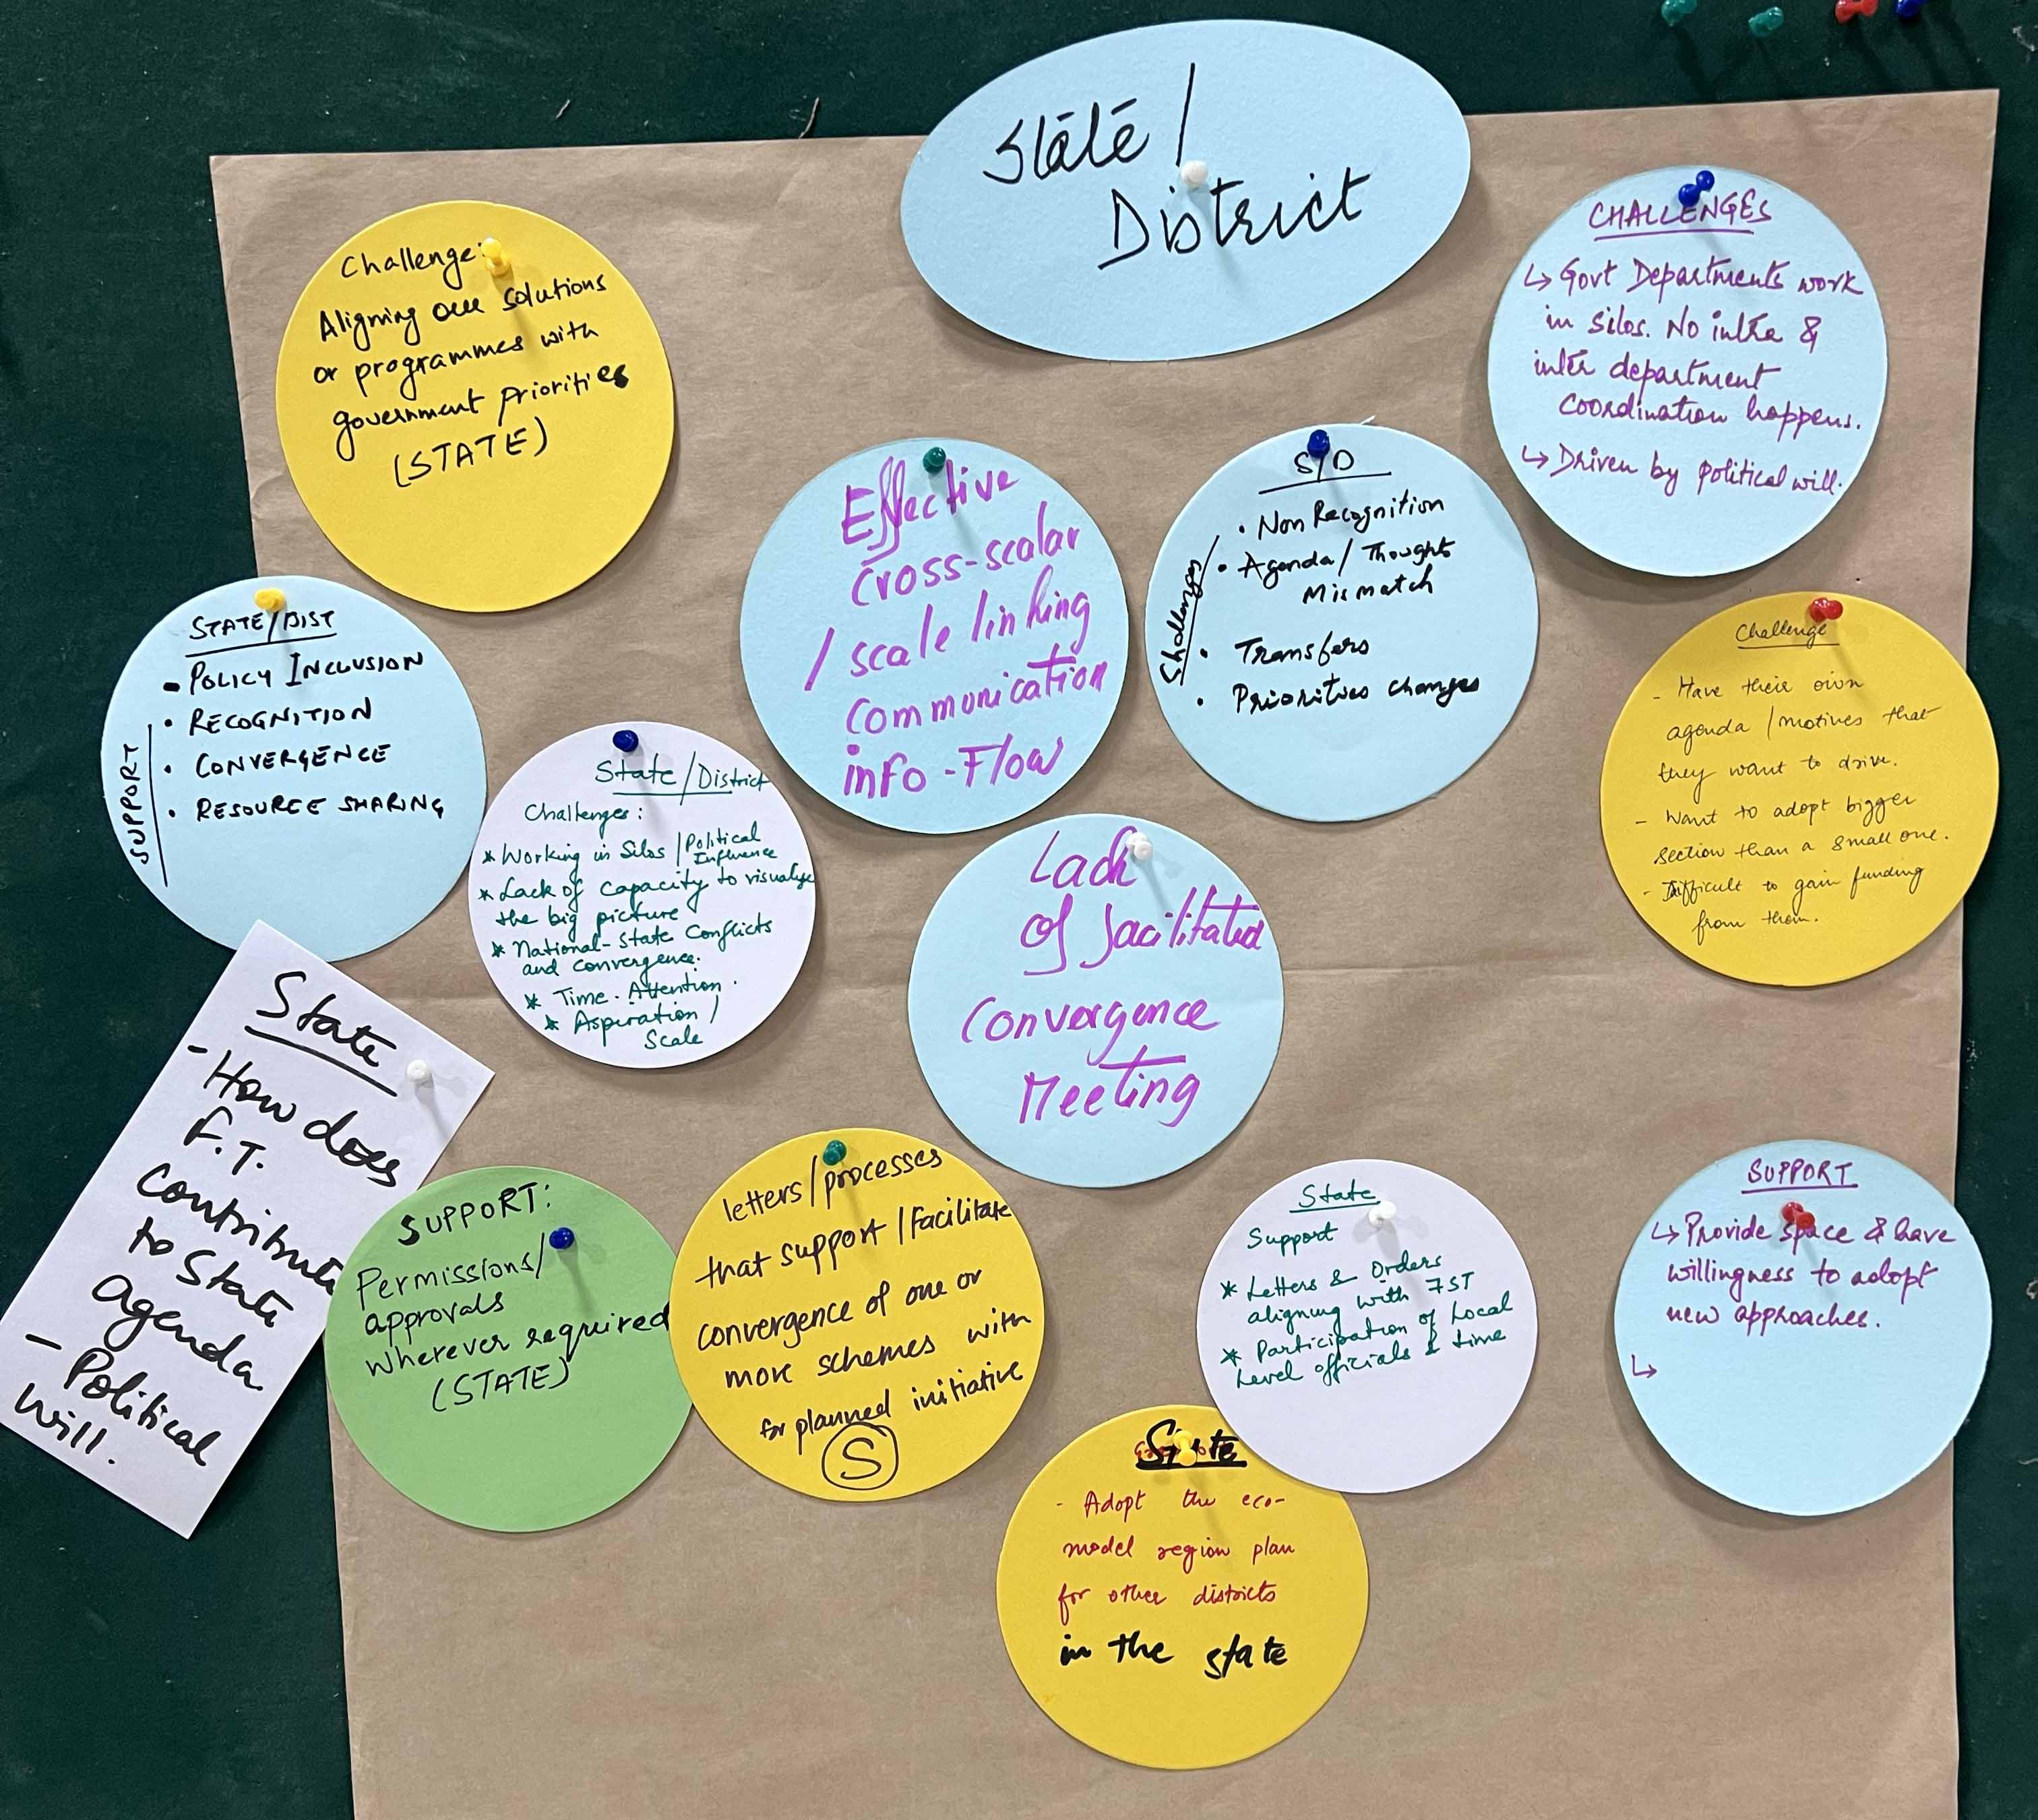 State /
District
Challenge:
Aligning our solutions
or programmes with
government priorities
(STATE)
CHALLENGES
↳ Govt Departments work
in silos. No intra &
inter department
coordination happens.
↳ Driven by political will.
Effective
cross-scalar
/ scale linking
communication
info-Flow
S/D
Challenges
• Non Recognition
• Agenda / Thoughts
Mismatch
• Transfers
• Priorities changes
STATE/DIST
SUPPORT
- POLICY INCLUSION
• RECOGNITION
• CONVERGENCE
• RESOURCE SHARING
Challenge
- Have their own
agenda / motives that
they want to drive.
- Want to adopt bigger
section than a small one.
- Difficult to gain funding
from them.
State/District
Challenges:
* Working in Silos / Political
Influence
* Lack of capacity to visualize
the big picture
* National-State Conflicts
and convergence.
* Time. Attention.
* Aspiration /
Scale
Lack
of facilitated
Convergence
Meeting
State
- How does
F.T.
contribute
to State
agenda
- Political
will.
SUPPORT:
Permissions/
approvals
wherever required
(STATE)
letters/processes
that support / facilitate
convergence of one or
more schemes with
for planned initiative
S
State
Support
* Letters & Orders
aligning with FST
* Participation of Local
Level officials & time
SUPPORT
↳ Provide space & have
willingness to adopt
new approaches.
↳
State
- Adopt the eco-
model region plan
for other districts
in the state